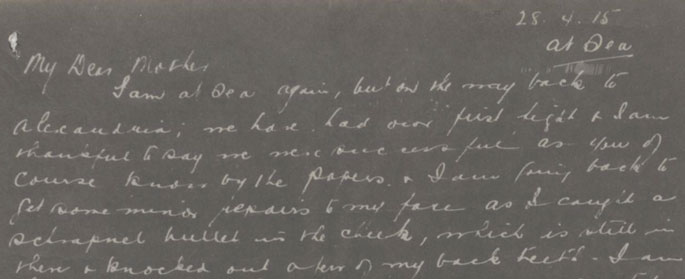 28.4.15
At Sea
My Dear Mother
I am at Sea again, but on the way back to
Alexandria; we have had our first fight & I am
thankful to say we were successful as you of
course know by the papers. & I am going back to
get some minor repairs to my face as I caught a
schrapnel bullet in the cheek, which is still in
there & knocked out a few of my back teeth. I am